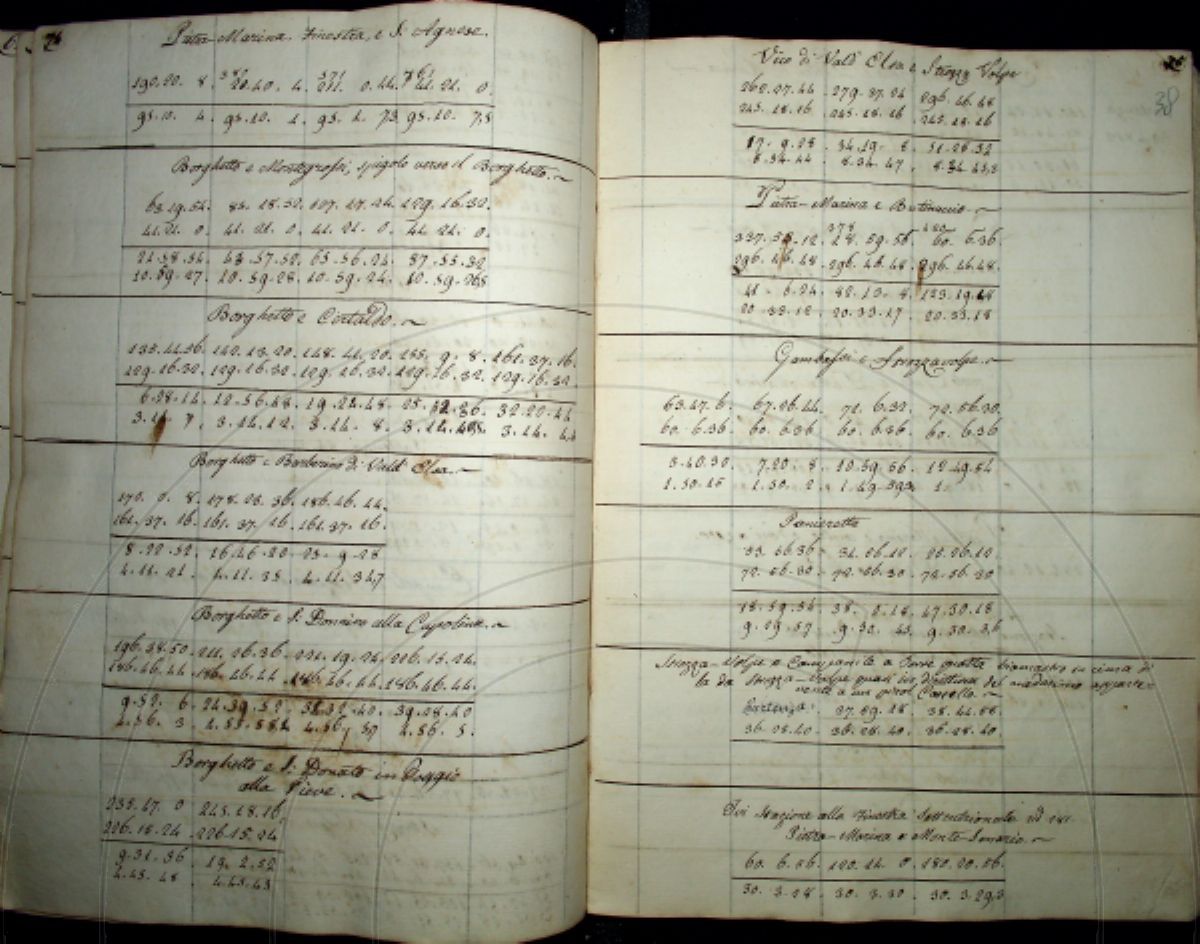 Pietra-Marina. Finestra, e S. Agnese.
190.20. 8. 381 20.40. 4. 571 211. 0.44. 761 41. 21. 0.
95.10. 4. 95.10. 1. 95. 1. 7,3 95.10. 7,5
Borghetto e Montegrossi, spigolo verso il Borghetto.
63.19.54. 85.18.52. 107.17.24. 129.16.32.
41.21. 0. 41.21. 0. 41.21. 0. 41.21. 0.
21.58.54. 43.57.52. 65.56.24. 87.55.32
10.59.27. 10.59.28. 10.59.24. 10.59.26,5
Borghetto e Certaldo.
135.44.46. 142.13.20. 148.41.20. 155. 9. 8. 161.37.16.
129.16.32. 129.16.32. 129.16.32. 129.16.32. 129.16.32.
6.28.14. 12.56.48. 19.24.48. 25.52.36. 32.20.44
3.14. 7. 3.14.12. 3.14. 8. 3.14. 3.14. 4,4
Borghetto e Barberino di Vald' Elsa.
170. 0. 8. 178.23.36. 186.46.44.
161.37.16. 161.37.16. 161.37.16.
8.22.52. 16.46.20. 25. 9.28
4.11.26. 4.11.35. 4.11.34,7
Borghetto e S. Donnino alla Capolina.
196.38.50. 211.26.36. 221.19.24. 226.15.24.
186.46.44. 186.46.44. 186.46.44. 186.46.44.
9.52. 6. 24.39.52. 34.32.40. 39.28.40
4.56. 3. 4.55.58,4 4.56, 4.56. 5.
Borghetto e S. Donato in Poggio
alla Pieve.
235.47. 0. 245.18.16.
226.15.24. 226.15.24
9.31.36. 19. 2.52
4.45.48. 4.45.43
38
Vico di Vald' Elsa e Strozza Volpe
262.27.44. 279.37.24. 296.46.48
245.18.16. 245.18.16. 245.18.16
17. 9.28. 34.19. 8. 51.28.32
8.34.44. 8.34.47. 8.34.45,3
Pietra-Marina e Batinaccio.
337.53.12. 378 18.59.56. 420 60. 6.36.
296.46.48. 296.46.48. 296.46.48.
41. 6.24. 82.13. 8. 123.19.48
20.33.12. 20.33.17. 20.33.18
Gambassi e Strozzavolpe.
63.47. 6. 67.26.44. 71. 6.32. 72.56.30.
60. 6.36. 60. 6.36. 60. 6.36. 60. 6.36
3.40.30. 7.20. 8. 10.59.56. 12.49.54
1.50.15. 1.50. 2. 1.49.59,3. 1.
Panieretta
72.56.30. 72.56.30. 72.56.30
18.59.54. 38. 47.30.18
9.29.57. 9.30. 9.30. 3,6
Strozza-Volpe e Campanile a Torre in cima di
da Strozza-Volpe quasi in direttura del medesimo apparte-
nente a un piccol Castello.
Partenza. 37.59.18. 38.44.58.
36.28.40. 36.28.40. 36.28.40.
Ivi Stazione alla Finestra Settentrionale
Pietra-Marina e Monte-Senario.
60. 6.56. 120.14. 0. 180.20.56.
30. 3.28. 30. 3.30. 30. 3.29,3